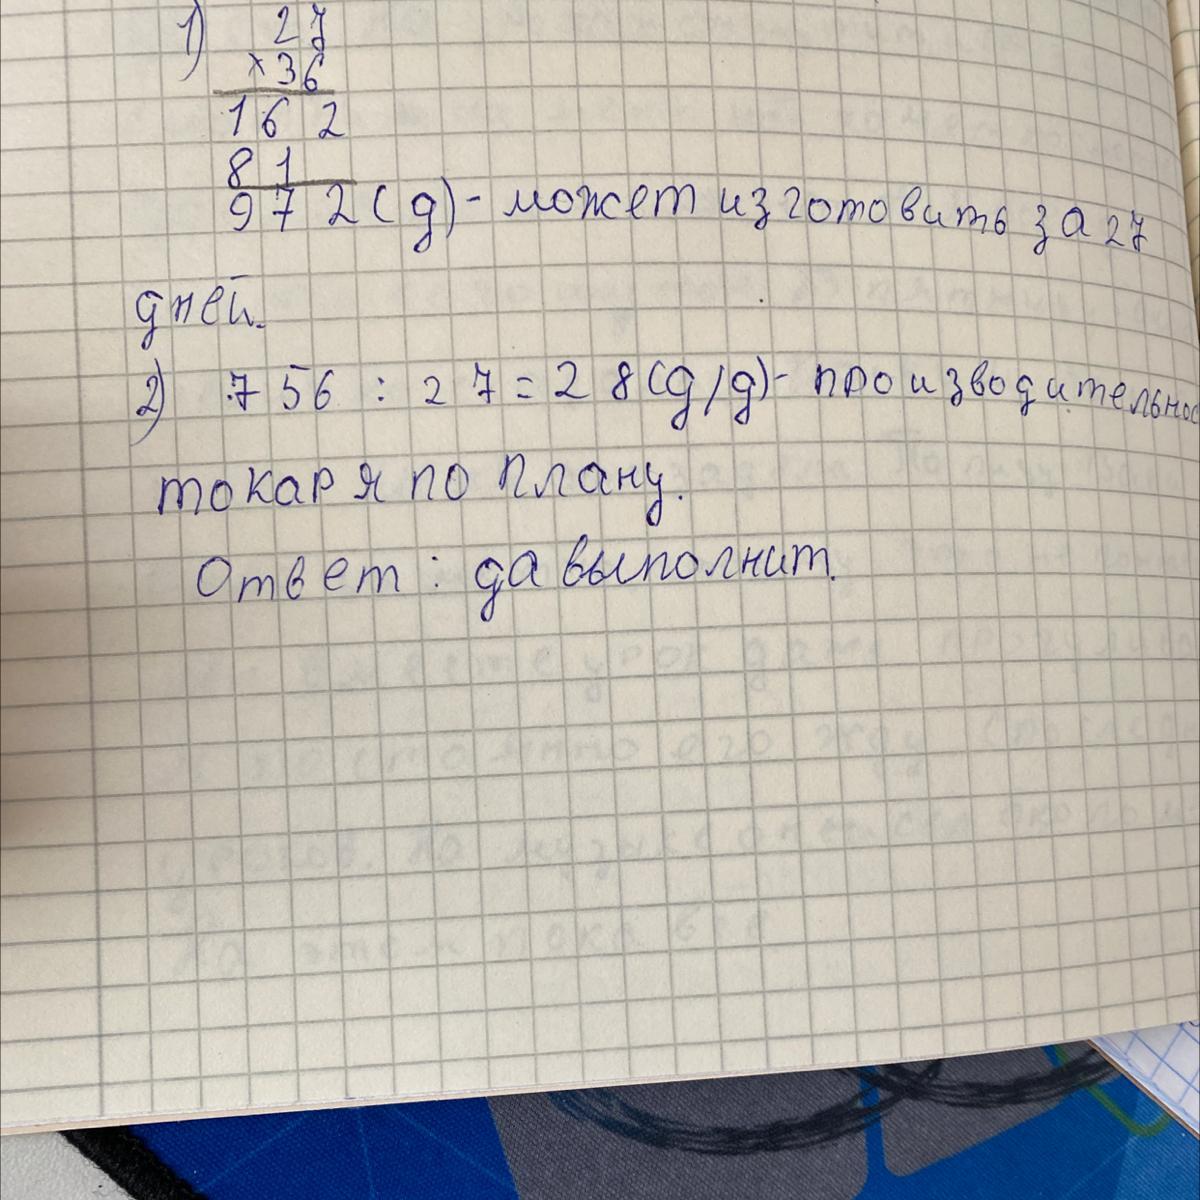 1) 27
×36
162
81
972 (д) - может изготовить за 27
дней.
2) 756 : 27 = 28 (д/д) - производительнос
токаря по плану.
Ответ : да выполнит.